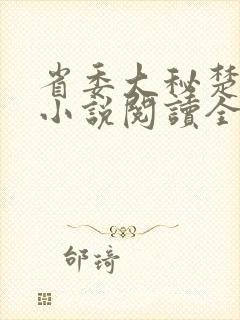 省委大秘楚
小說閱讀全
邰琦